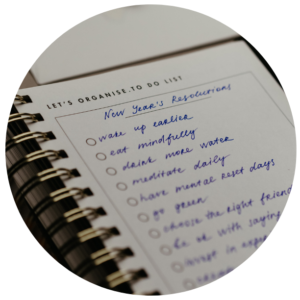 LET'S ORGANISE. TO DO LIST
New Year's Resolutions
wake up earlier
eat mindfully
drink more water
meditate daily
have mental reset days
go green
choose the right friend
be ok with saying
invest in